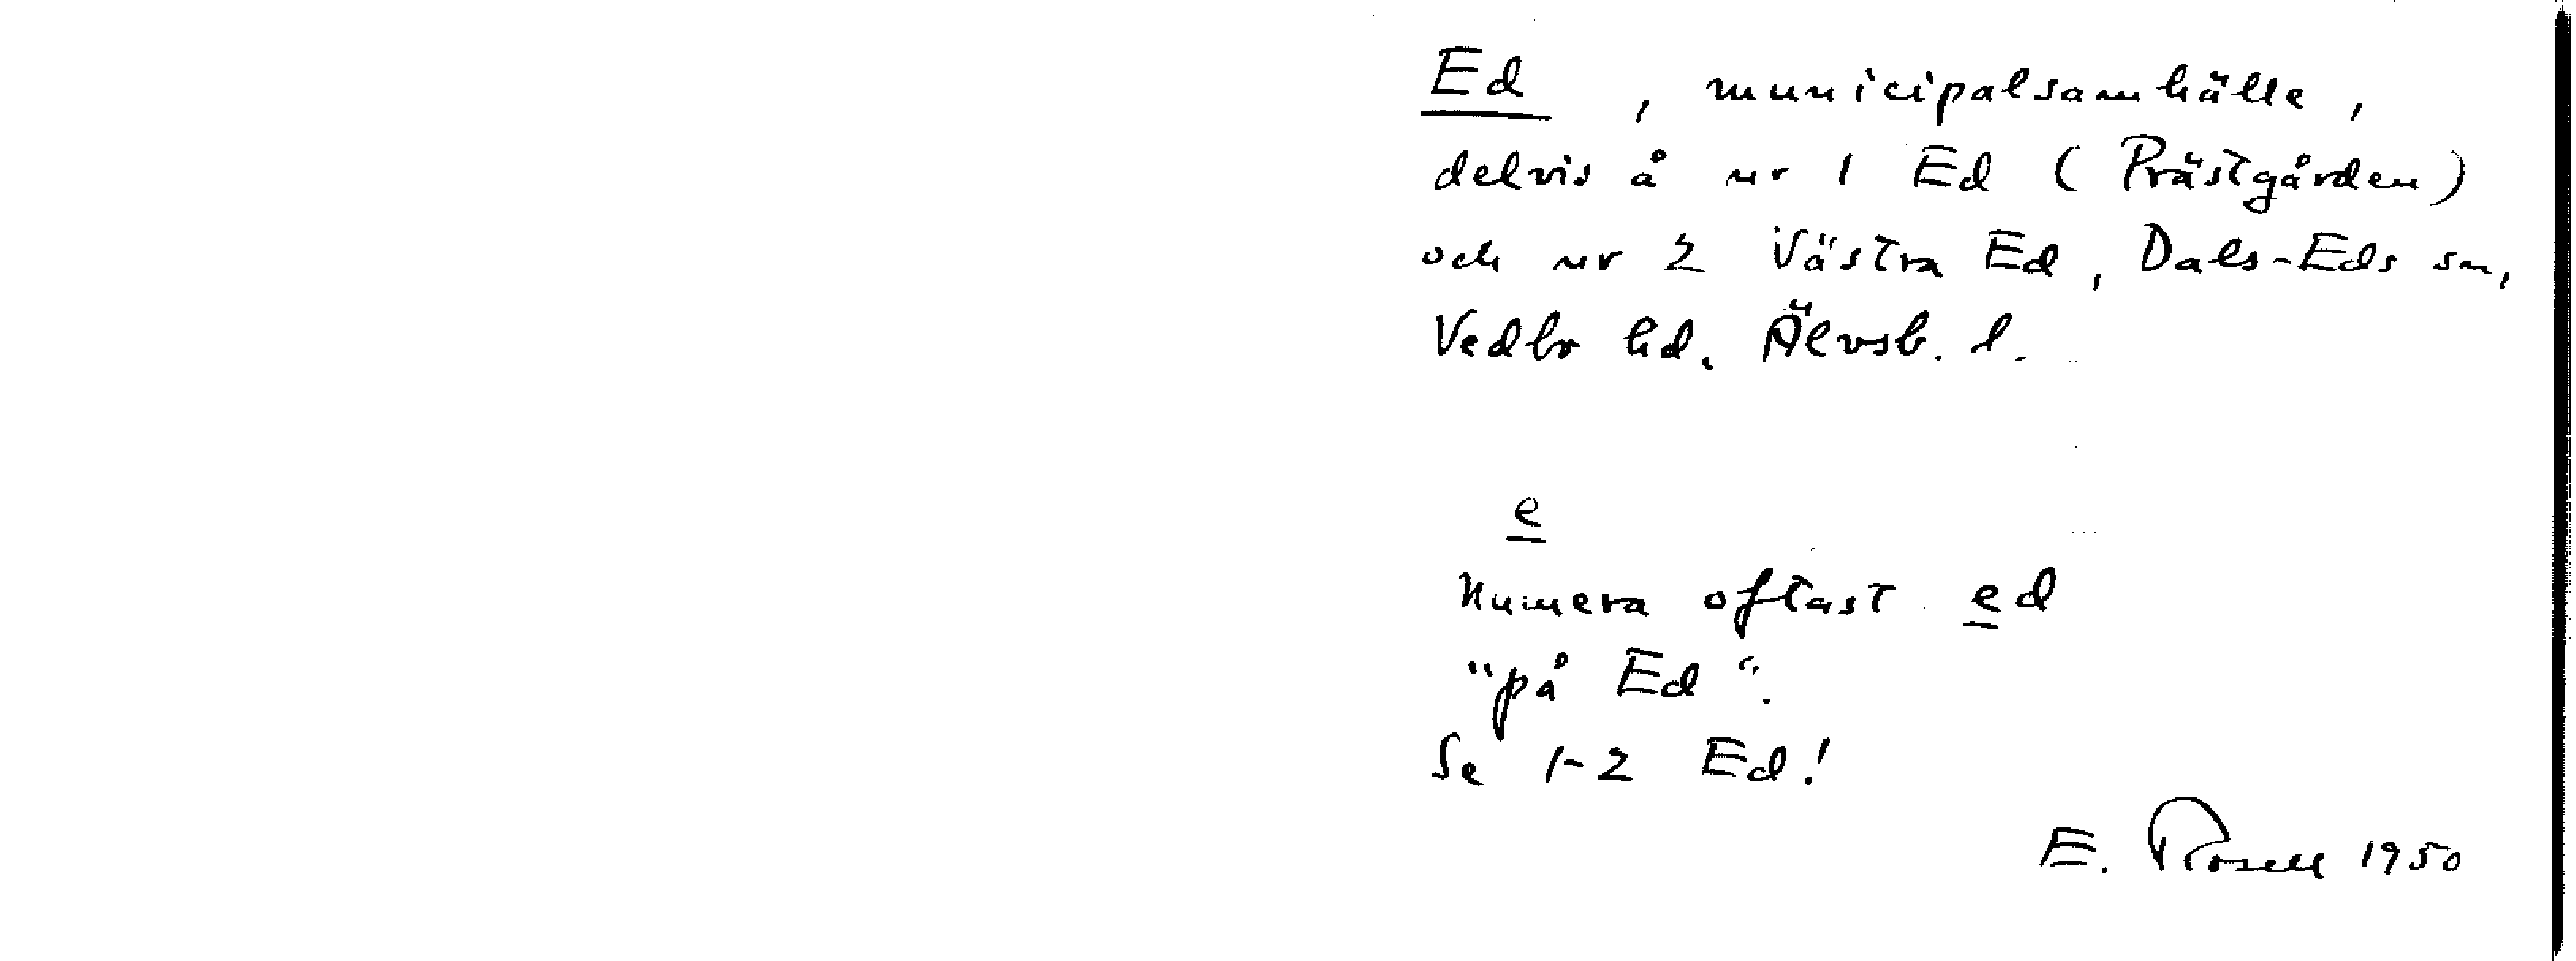 Ed , municipalsamhälle,
delvis å nr 1 Ed (Prästgården)
och nr 2 Västra Ed, Dals-Eds sn,
Vedbo hd. Älvsb. l.
e
Numera oftast ed
"på Ed".
Se 1-2 Ed!
E. Rosell 1950